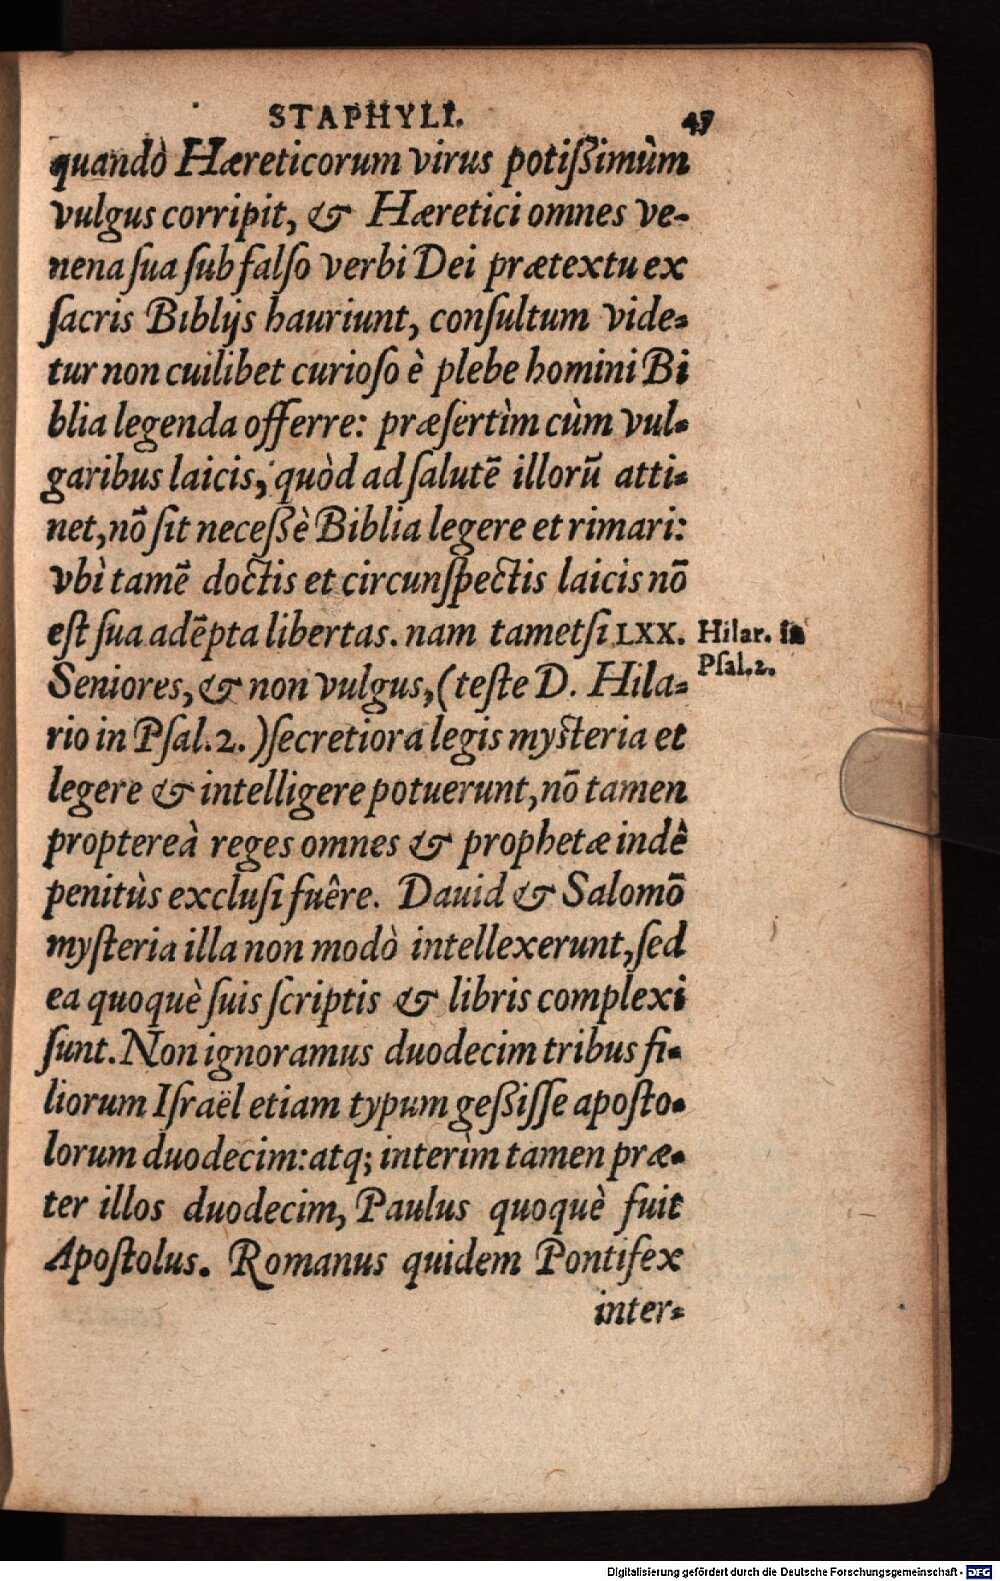 STAPHYLI. 47
quandò Hæreticorum virus potißimùm
vulgus corripit, & Hæretici omnes ve-
nena ſua ſub falſo verbi Dei prætextu ex
ſacris Biblijs hauriunt, conſultum vide-
tur non cuilibet curioſo è plebe homini Bi
blia legenda offerre: præſertìm cùm vul-
garibus laicis, quòd ad ſalutē illorū atti-
net, nō ſit neceßè Biblia legere et rimari:
vbì tamē doctis et circunſpectis laicis nō
eſt ſua adēpta libertas. nam tametſi LXX.
Hilar. in
Pſal. 2.
Seniores, & non vulgus, (teſte D. Hila-
rio in Pſal. 2. ) ſecretiora legis myſteria et
legere & intelligere potuerunt, nō tamen
proptereà reges omnes & prophetæ indè
penitùs excluſi fuêre. Dauid & Salomō
myſteria illa non modò intellexerunt, ſed
ea quoquè ſuis ſcriptis & libris complexi
ſunt. Non ignoramus duodecim tribus fi-
liorum Iſraël etiam typum geßiſſe apoſto-
lorum duodecim: atq; interìm tamen præ-
ter illos duodecim, Paulus quoquè fuit
Apoſtolus. Romanus quidem Pontifex
inter-
Digitalisierung gefördert durch die Deutsche Forschungsgemeinschaft - DFG